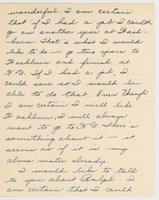 wonderful. I am certain
that if I had a job I could
go on another year at Wash-
burn. That's what I would
like to do - go two years to
Washburn and finish at
K.U. If I had a job, I
could save so I would be
able to do that. Even though
I am certain I will like
Washburn, I will always
want to go to K.U. There is
something about it - it
seems as if it is my
alma mater already.
I would like to talk
to you about Rush. I am
certain that I could